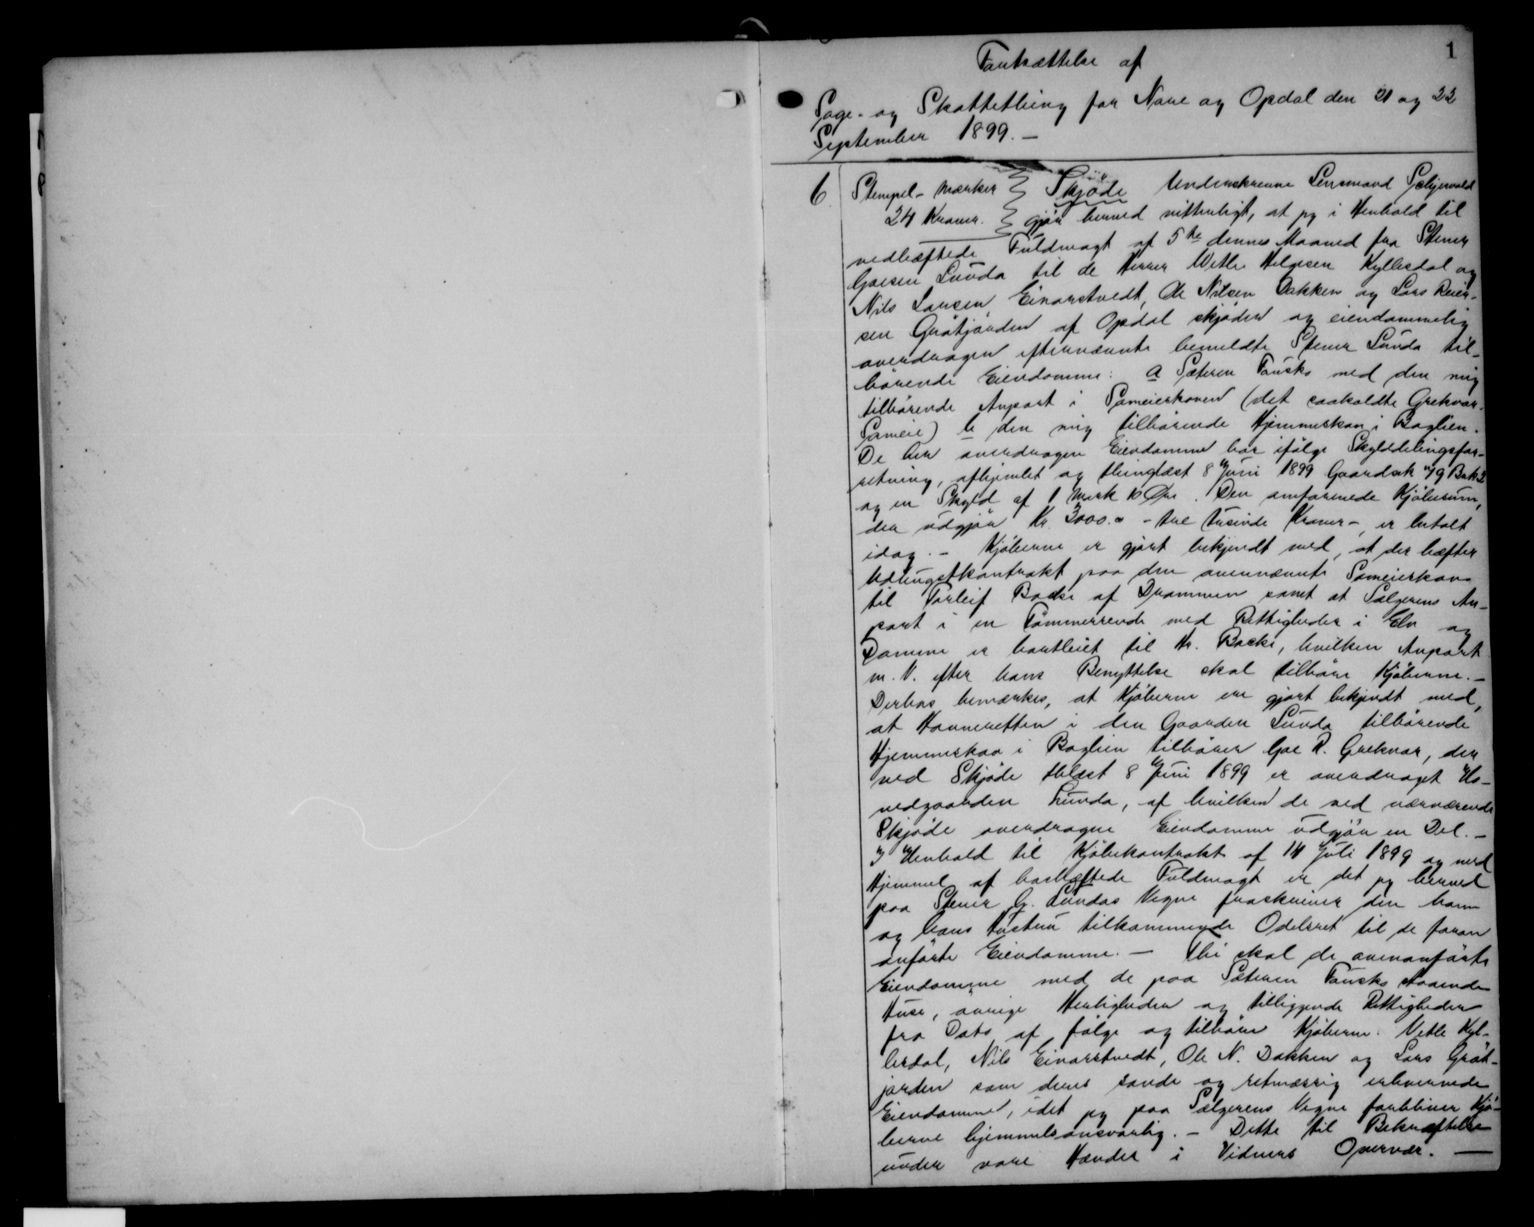 1
Fortsættelse af
Sage- og Skattething for Nore og Opdal den 21 og 22
September 1899. —
6. Stempel-mærker } Skjøde Underskrevne Lensmand
24 Kroner. } gjør herved vitterligt, at jeg i Henhold til
vedhæftede Fuldmagt af 5te dennes Maaned fra Stener
Goesen Lunda til de Herrer Vetle Helgesen Kyllesdal og
Nils Larsen Einarstvedt, Ole Nilsen Dakken og Lars Reier-
sen Grøtjorden af Opdal skjøder og eiendommelig
overdrager efternævnte bemeldte Stener Lunda til-
hørende Eiendomme: a Sæteren Fønsko med den mig
tilhørende Anpart i Sameierskoven (det saakaldte Grekvar-
Sameie) b den mig tilhørende Hjemmeskov i Baglien.
De her overdragne Eiendomme har ifølge Skylddelingsfor-
retning, afhjemlet og thinglæst 8 Juni 1899 Gaards No 9 Br No 2
og en Skyld af 1 Mark 10 Øre. Den omforenede Kjøbesum,
der udgjør Kr. 2000.00 - toe tusinde Kroner -, er betalt
idag. - Kjøberne er gjort bekjendt med, at der hæfter
Udhugstkontrakt paa den ovennævnte Sameierskov
til Torleif Backe af Drammen samt at Sælgerens An-
part i en Tømmerrende med Rettigheder i Elv og
Damme er bortleiet til Hr. Backe, hvilken Anpart
m. V. efter hans Benyttelse skal tilhøre Kjøberne. -
Derhos bemærkes, at Kjøberne ere gjort bekjendt med,
at Havneretten i den Gaarden Lunda tilhørende
Hjemmeskov i Baglien tilhører Goe R. Grekvar, der
ved Skjøde thlæst 8 Juni 1899 er overdraget Ho-
vedgaarden Lunda, af hvilken de ved nærværende
Skjøde overdragne Eiendomme udgjør en Del. -
I Henhold til Kjøbekontrakt af 14 Juli 1899 og med
Hjemmel af hoshæftede Fuldmagt er det jeg herved
paa Stener G. Lundas Vegne fraskriver den ham
og hans Hustru tilkommende Odelsret til de foran
anførte Eiendomme. — Thi skal de ovenanførte
Eiendomme med de paa Sæteren Fønsko staaende
Huse, øvrige Herligheder og tilliggende Rettigheder
fra Dato af følge og tilhøre Kjøberne: Vetle Kyl-
lesdal, Nils Einarstvedt, Ole N. Dakken og Lars Grøt-
jorden som deres sande og retmæssig erhvervede
Eiendomme, idet jeg paa Sælgerens Vegne forbliver Kjø-
berne hjemmelsansvarlig. - Dette til Bekræftelse
under vore Hænder i Vidners Overvær. —